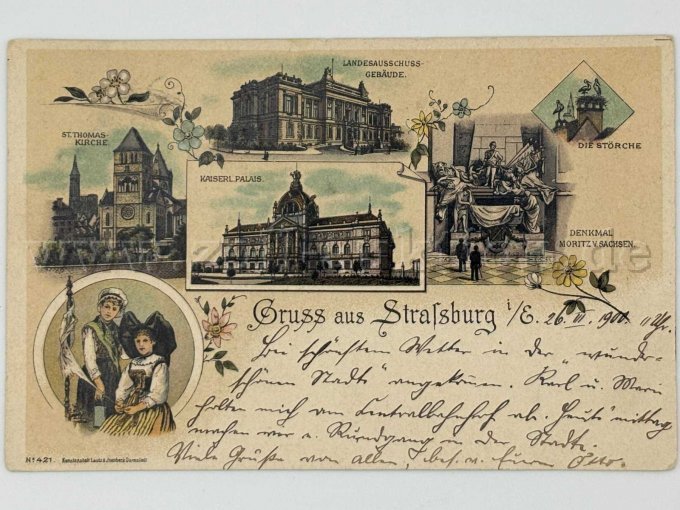 LANDESAUSSCHUSS-
GEBÄUDE.
ST. THOMAS-
KIRCHE.
DIE STÖRCHE
KAISERL. PALAIS.
DENKMAL
MORITZ V. SACHSEN.
Gruss aus Straſsburg i/E. 26. VI. 11 Uhr.
Bei schönstem Wetter in der "wunder-
schönen Stadt" angekommen. Karl u. Marie
holten mich am Centralbahnhof ab. Heute mittag
machen wir e. Rundgang in der Stadt.
Viele Grüße von allen, bes. v. Eurem Otto.
No 421. Kunstanstalt Lautz & Darmstadt